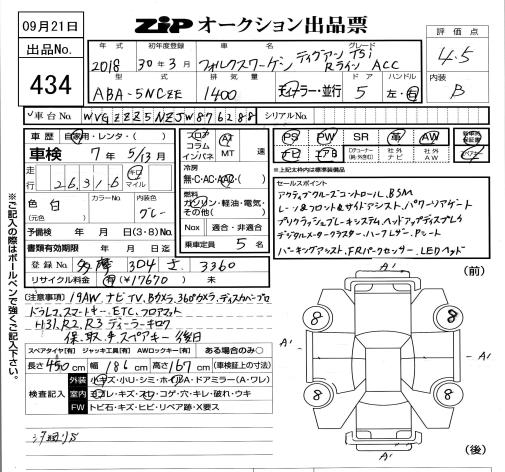 09月21日
ZIPオークション出品票
出品No.
434
年式 初年度登録 車名 グレード
2018 30年3月 フォルクスワーゲン ティグアン TSi Rライン ACC
型式 排気量 ドア ハンドル
ABA-5NCZE 1400 ディーラー・並行 5 左・右
評価点
4.5
内装
B
車台No. WVGZZZ5NZJW876288 シリアルNo.
車歴 自家用・レンタ・( )
車検 7年 5/13月
走行 26,316 キロ マイル
色 白 (元色) カラーNo. 内装色 グレー
予備検 年 月 日(3・8)No.
書類有効期限 年 月 日迄
登録No. 多摩 304 さ 3360
リサイクル料金 有(¥17670) 未
フロア コラム インパネ AT MT 速
冷房 無・C・AC・AAC・( )
燃料 ガソリン・軽油・電気・その他( )
Nox 適合・非適合
乗車定員 5 名
PS PW SR 革 AW
ナビ エアB 社外ナビ 社外AW
※上記太枠内は標準装備品
セールスポイント
アクティブクルーズコントロール、BSM
レーン&フロント&サイドアシスト、パワーリアゲート
プリクラッシュブレーキシステム、ヘッドアップディスプレイ
デジタルメータークラスター、ハーフレザー、Pシート
パーキングアシスト、FRパークセンサー、LEDヘッド
注意事項 19AW、ナビ TV、Bカメラ、360カメラ、ディスカバープロ
ドラレコ、スマートキー、ETC、フロアマット
H31、R2、R3 ディーラーキロク
保、取、予 スペアキー 後日
スペアタイヤ[有] ジャッキ工具[有] AWロックキー[有] ある場合のみ○
長さ 450cm 幅 186cm 高さ 167cm (車検証上の寸法)
検査記入
外装 小キズ・小U・シミ・ホイルA・ドアミラー(A・ワレ)
室内 ヨゴレ・キズ・スレ・コゲ・穴・キレ・破れ・ウキ
FW トビ石・キズ・ヒビ・リペア跡・X要ス
(前)
A'
8 8
A' A'
8 8
A'
(後)
※ご記入の際はボールペンで強くご記入下さい。